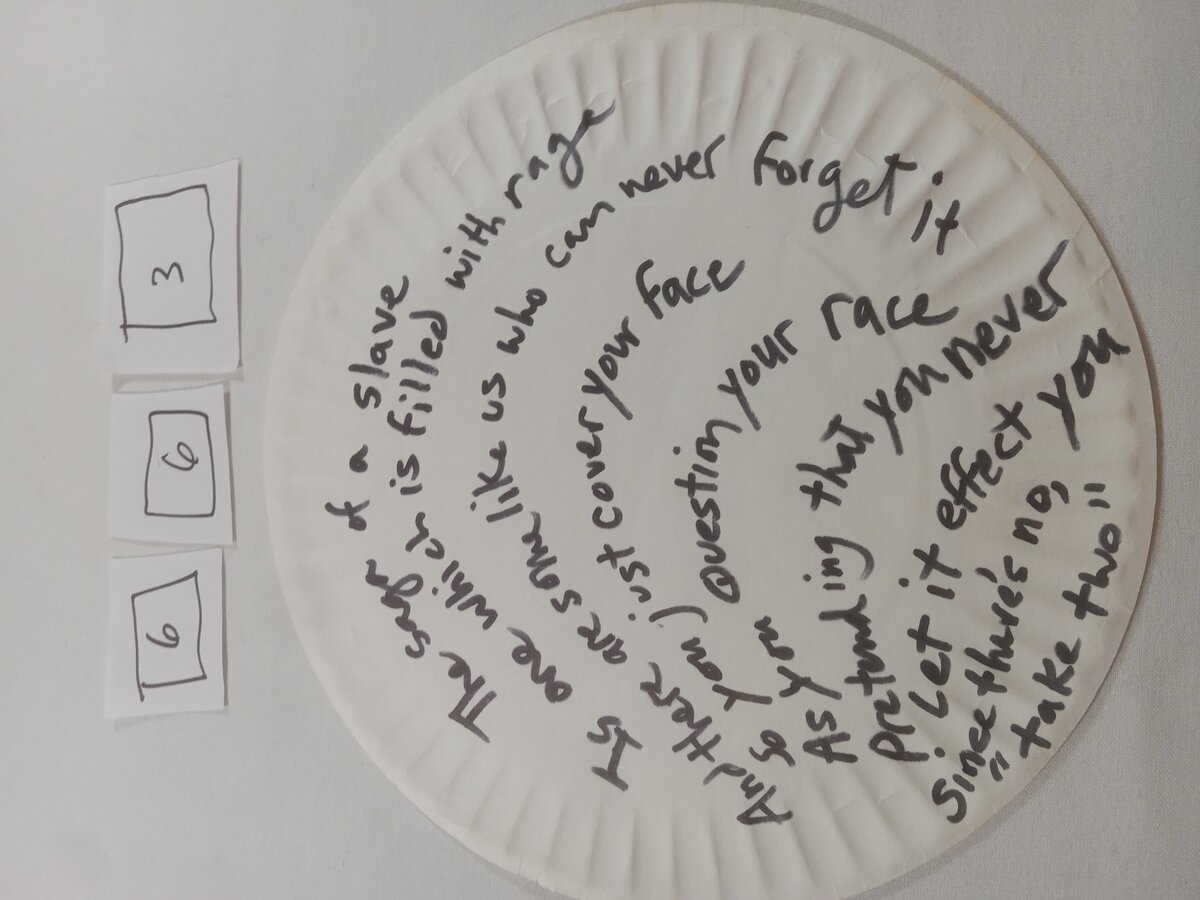 6 6 3
The saga of a slave
Is one which is filled with rage
And there are some like us who can never forget it
So you just cover your face
As you Question your race
Pretending that you never
Let it effect you
Since there's no,
"take two"